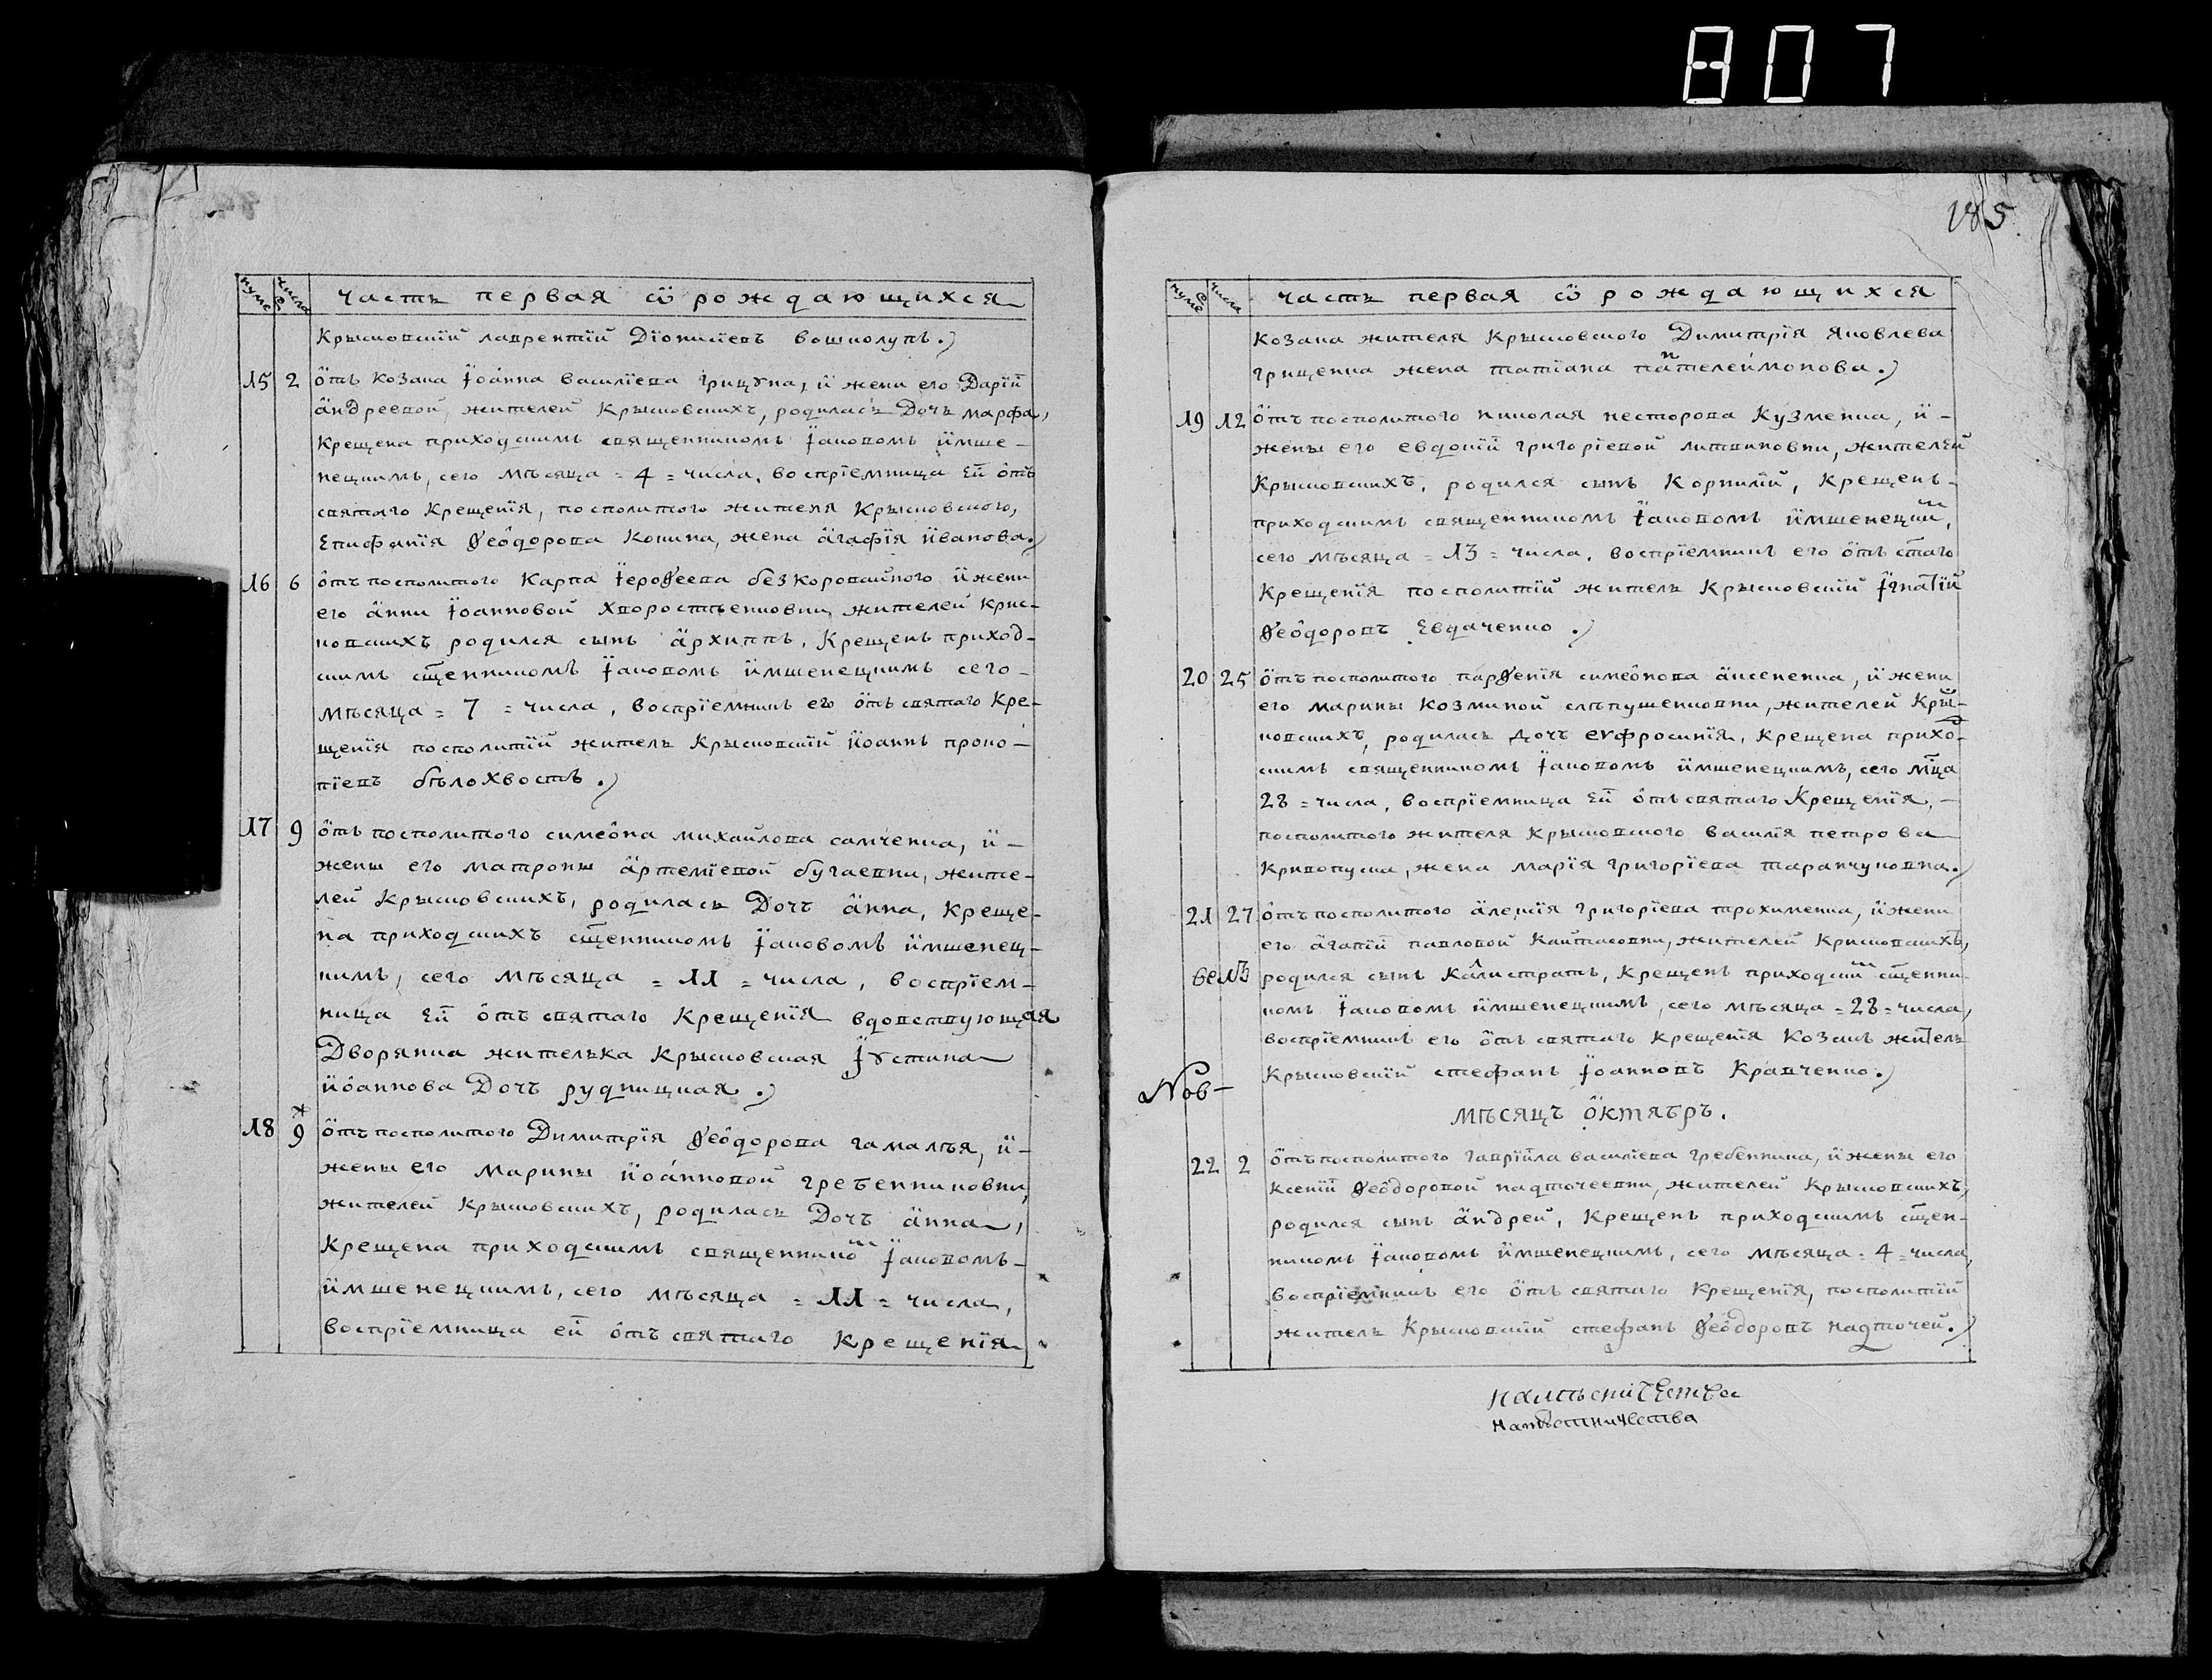 807
185.
нуме числа часть первая ѿ рождающихся
Крысковскїй лаврентїй Дїонисїевъ вошколупъ.)
15 2 ѿтъ козака Їоанна василїева грицꙋка, и жени его Дарїи
андреевой, жителей Крысковскихъ, родилась Дочь марфа,
крещена приходскимъ священникомъ Їаковомъ имше-
нецкимъ, сего мѣсяца = 4 = числа. воспрїемница Ей ѿтъ
святаго Крещенїя, посполитого жителя Крысковского,
Епифанїя Ѳеодорова Кокика, жена агафїя иванова.)
16 6 ѿтъ посполитого Карпа Їероѳеева безкоровайного и жени
его анни Їоанновой Хворостѣенковни, жителей крис-
ковскихъ родился сынъ архиппъ, Крещенъ приход-
скимъ сщенникомъ Їаковомъ имшенецкимъ сего-
мѣсяца = 7 = числа, воспрїемникъ его ѿтъ святаго Кре-
щенїя посполитїй житель Крысковскїй иоаннъ проко-
пїевъ бѣлохвостъ.)
17 9 ѿтъ посполитого симеона михайлова самченка, и-
жены его матроны артемїевой бугаевни, жите-
лей Крысковскихъ, родилась Дочъ анна, Креще-
на приходскихъ сщенникомъ Їаковомъ имшенец-
кимъ, сего мѣсяца = 11 = числа, воспрїем-
ница Ей ѿтъ святаго Крещенїя вдовствующая
Дворянка жителька Крысковская Їꙋстина
иоаннова Дочъ рудницкая.)
18 9 ѿтъ посполитого Димитрїя Ѳеодорова гамалѣя, и-
жены его Марины иоанновой гребенниковни,
жителей Крысковскихъ, родилась Дочъ анна,
Крещена приходскимъ священникомъ Їаковомъ-
имшенецкимъ, сего мѣсяца = 11 = числа,
воспрїемница ей ѿтъ святаго Крещенїя
нуме числа часть первая ѿ рождающихся
козака жителя Крысковского Димитрїя Яковлева
грищенка жена татїана пантелеймонова.)
19 12 ѿтъ посполитого николая несторова Кузменка, и-
жены его евдокїи григорїевой литвиновни, жителей
Крысковскихъ, родился сынъ Корнилїй, Крещенъ-
приходскимъ священникомъ Їаковомъ имшенецкимъ,
сего мѣсяца = 13 = числа. воспрїемникъ его ѿтъ стаго
Крещенїя посполитїй житель Крысковскїй Їгнатїй
Ѳеодоровъ Евдаченко.)
20 25 ѿтъ посполитого парѳенїя симеонова аксененка, и жени
его марины Козминой слѣпушенковни, жителей Кры-
ковскихъ, родилась дочъ еѵфросинїя, Крещена прихо-
скимъ священникомъ Їаковомъ имшенецкимъ, сего мца
28 = числа, воспрїемница Ей ѿтъ святаго Крещенїя,-
посполитого жителя Крысковского василїя петрова
Кривопуска, жена марїя григорїева таранчуковна.)
21 27 ѿтъ посполитого алексїя григорїева трохименка, и жени
его агапїи павловой Кайтасовни, жителей Крисковскихъ,
родился сынъ Калистратъ, Крещенъ приходскимъ сщенни-
комъ Їаковомъ имшенецкимъ, сего мѣсяца = 28 = числа,
воспрїемникъ его ѿтъ святаго Крещенїя Козакъ житель
Крысковскїй стефанъ Їоанновъ Кравченко.)
мѣсяцъ октябръ.
22 2 ѿтъ посполитого гаврїила василїева гребенника, и жены его
ксенїи Ѳеодоровой надточеевни, жителей Крысковскихъ,
родился сынъ андрей, Крещенъ приходскимъ сщен-
никомъ Їаковомъ имшенецкимъ, сего мѣсяца = 4 = числа,
воспрїемникъ его ѿтъ святаго Крещенїя, посполитїй
житель Крысковскїй стефанъ Ѳеодоровъ надточей.)
намѣсничества
намѣстничества